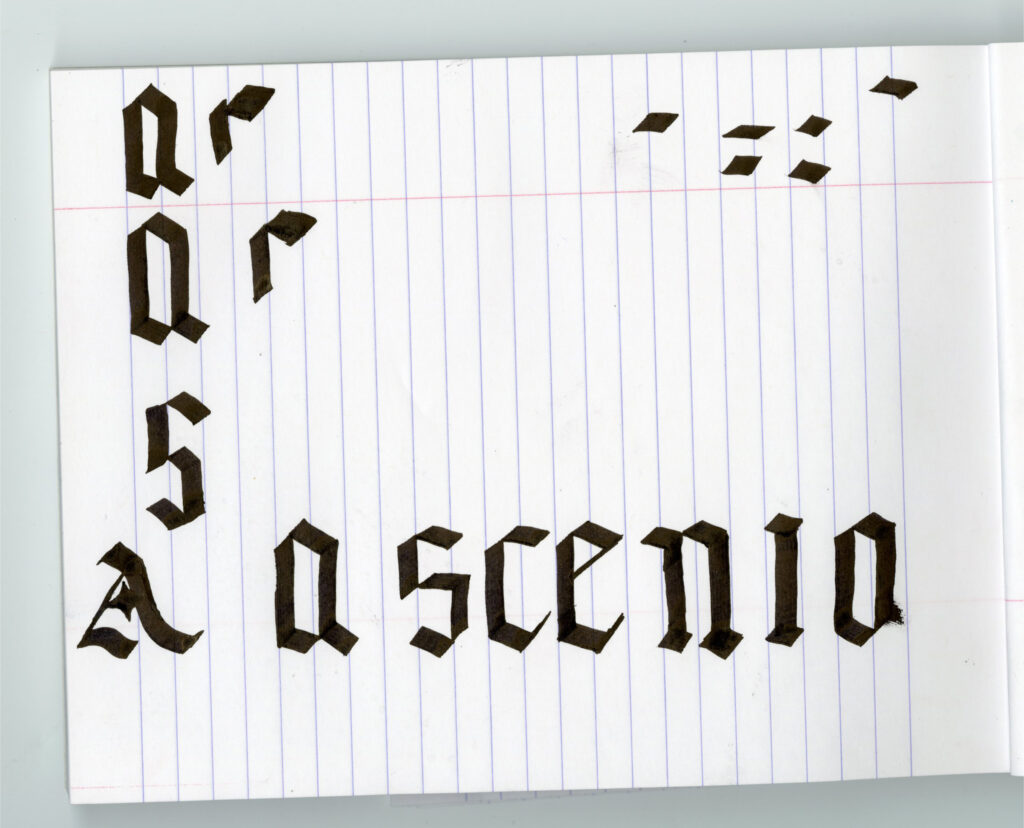 a r
a r
s
A a s c e n i o